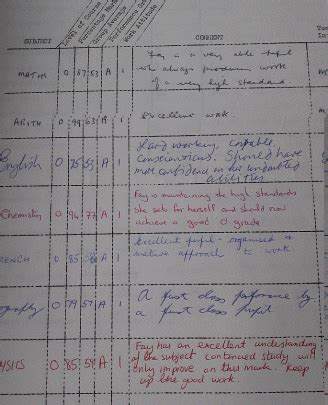 SUBJECT
Level of Course
Percentage Mark
Group Average
Performance Grade
Work Attitude
COMMENT
MATHS 0 87 53 A 1
Fay is a very able pupil
who always produces work
of a very high standard.
ARITH 0 99 63 A 1 Excellent work.
English 0 75 53 A 1
Hard working, capable,
conscientious. Should have
more confidence in her undoubted
abilities
Chemistry 0 94 77 A 1
Fay is maintaining the high standards
she sets for herself and should now
achieve a good O grade
FRENCH 0 85 56 A 1
Excellent pupil - organised &
mature approach to work
0 79 57 A 1
A first class performance by
a first class pupil
PHYSICS 0 85 59 A 1
Fay has an excellent understanding
of the subject continued study will
only improve on this mark. Keep
up the good work.